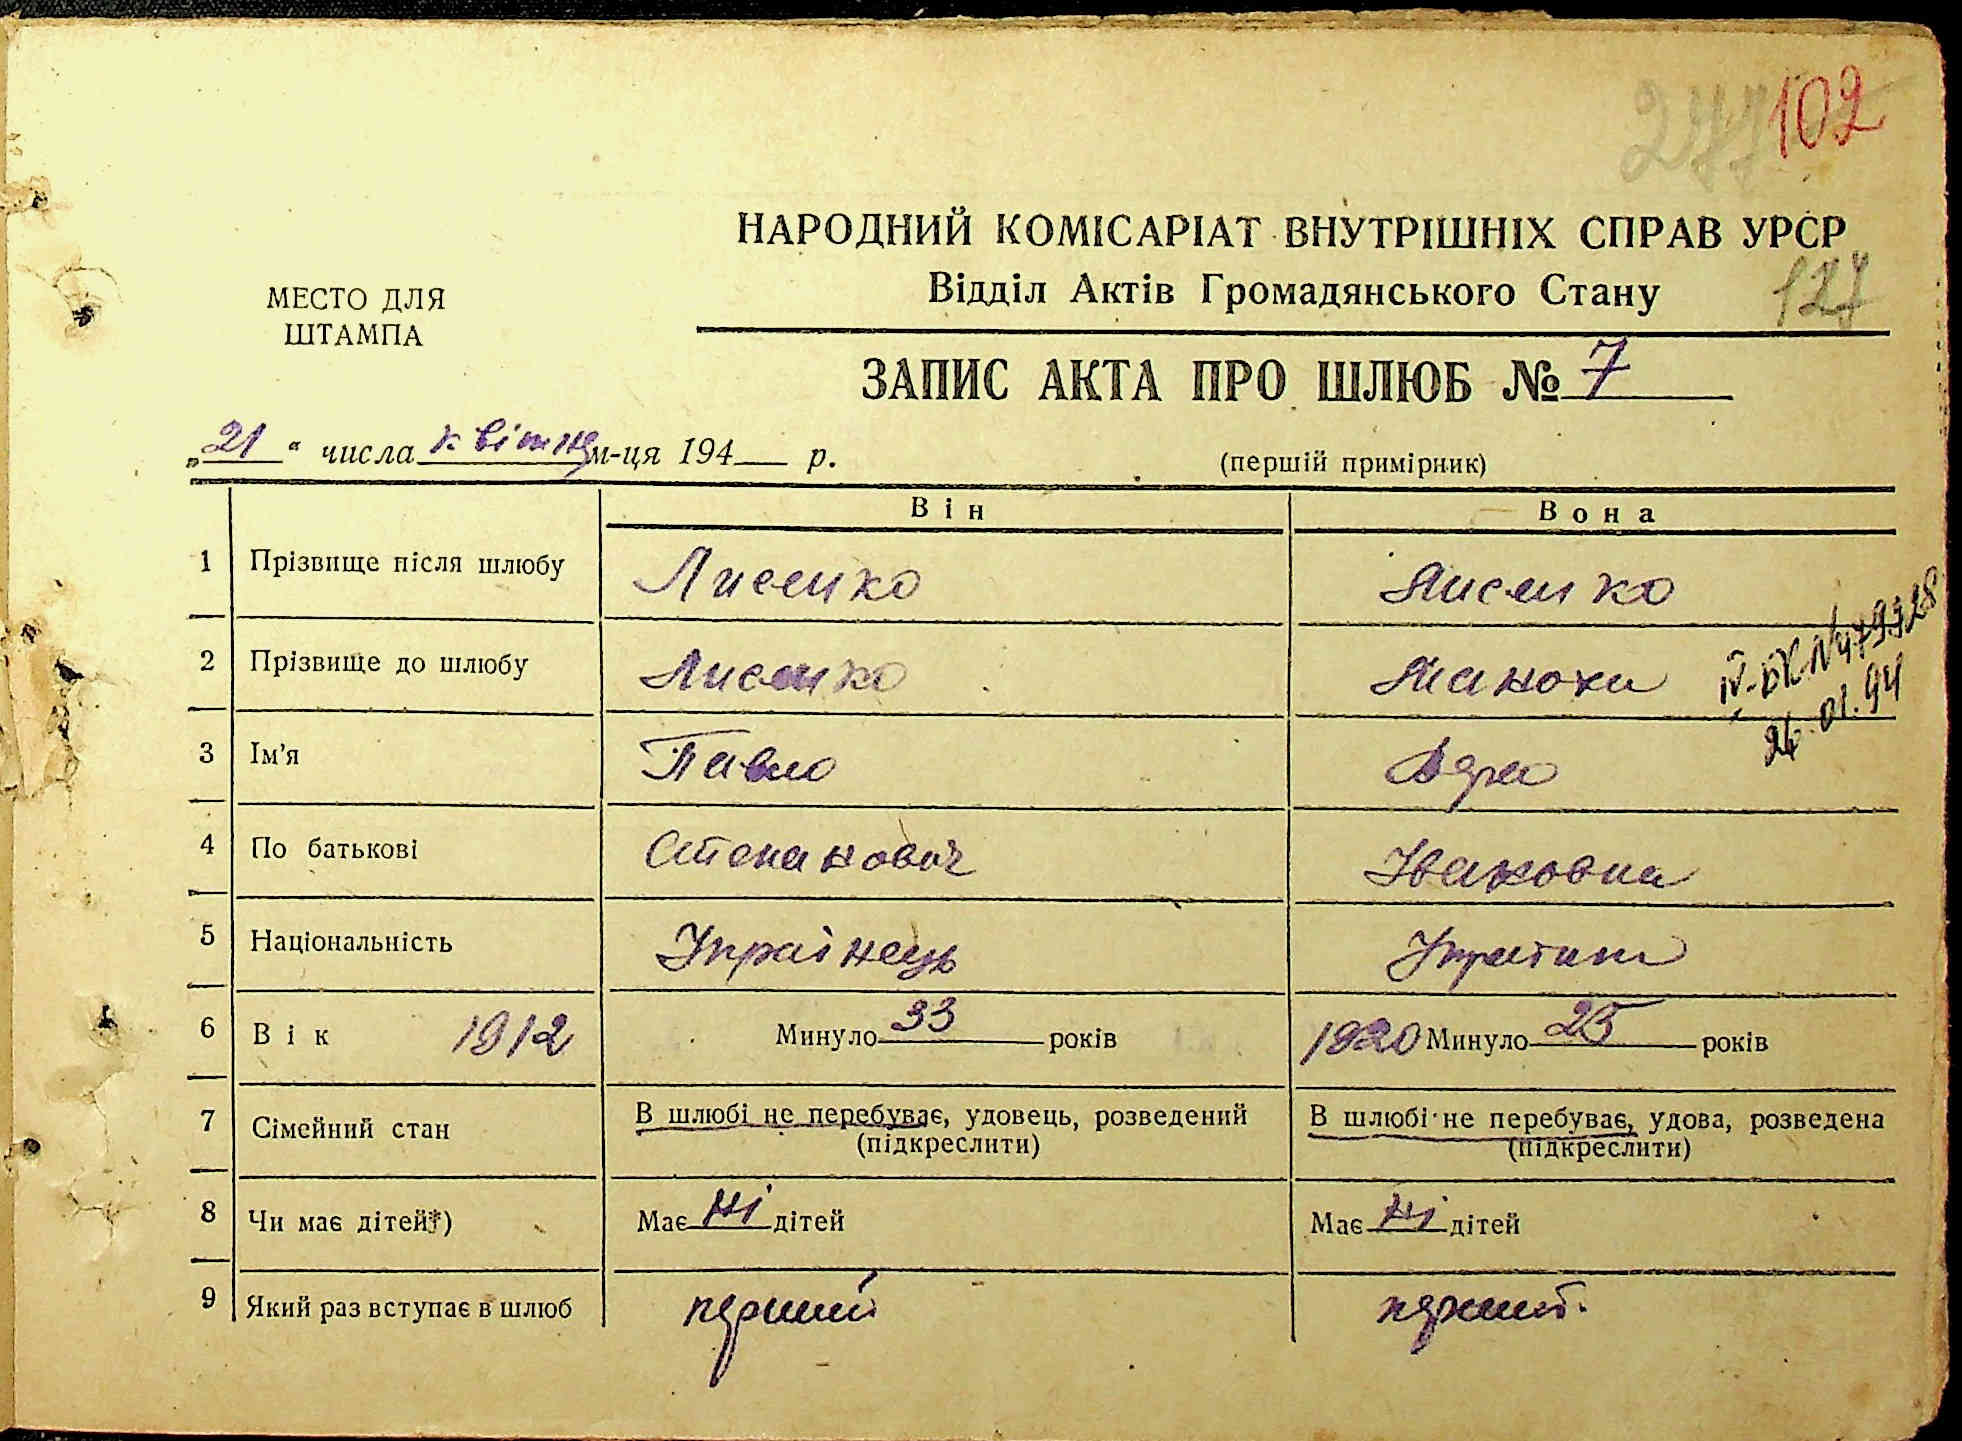 277 102
НАРОДНИЙ КОМІСАРІАТ ВНУТРІШНІХ СПРАВ УРСР
Відділ Актів Громадянського Стану
127
МЕСТО ДЛЯ
ШТАМПА
ЗАПИС АКТА ПРО ШЛЮБ № 7
„21“ числа квітня м-ця 194 р.
(перший примірник)
Він Вона
1 Прізвище після шлюбу Лисенко Лисенко
2 Прізвище до шлюбу Лисенко Манохи
IV-БК №479328
26.01.94
3 Ім'я Павло Вера
4 По батькові Степанович Івановна
5 Національність Українець Українка
6 Вік 1912 Минуло 33 років 1920 Минуло 25 років
7 Сімейний стан В шлюбі не перебуває, удовець, розведений В шлюбі не перебуває, удова, розведена
(підкреслити) (підкреслити)
8 Чи має дітей*) Має ні дітей Має ні дітей
9 Який раз вступає в шлюб перший перший